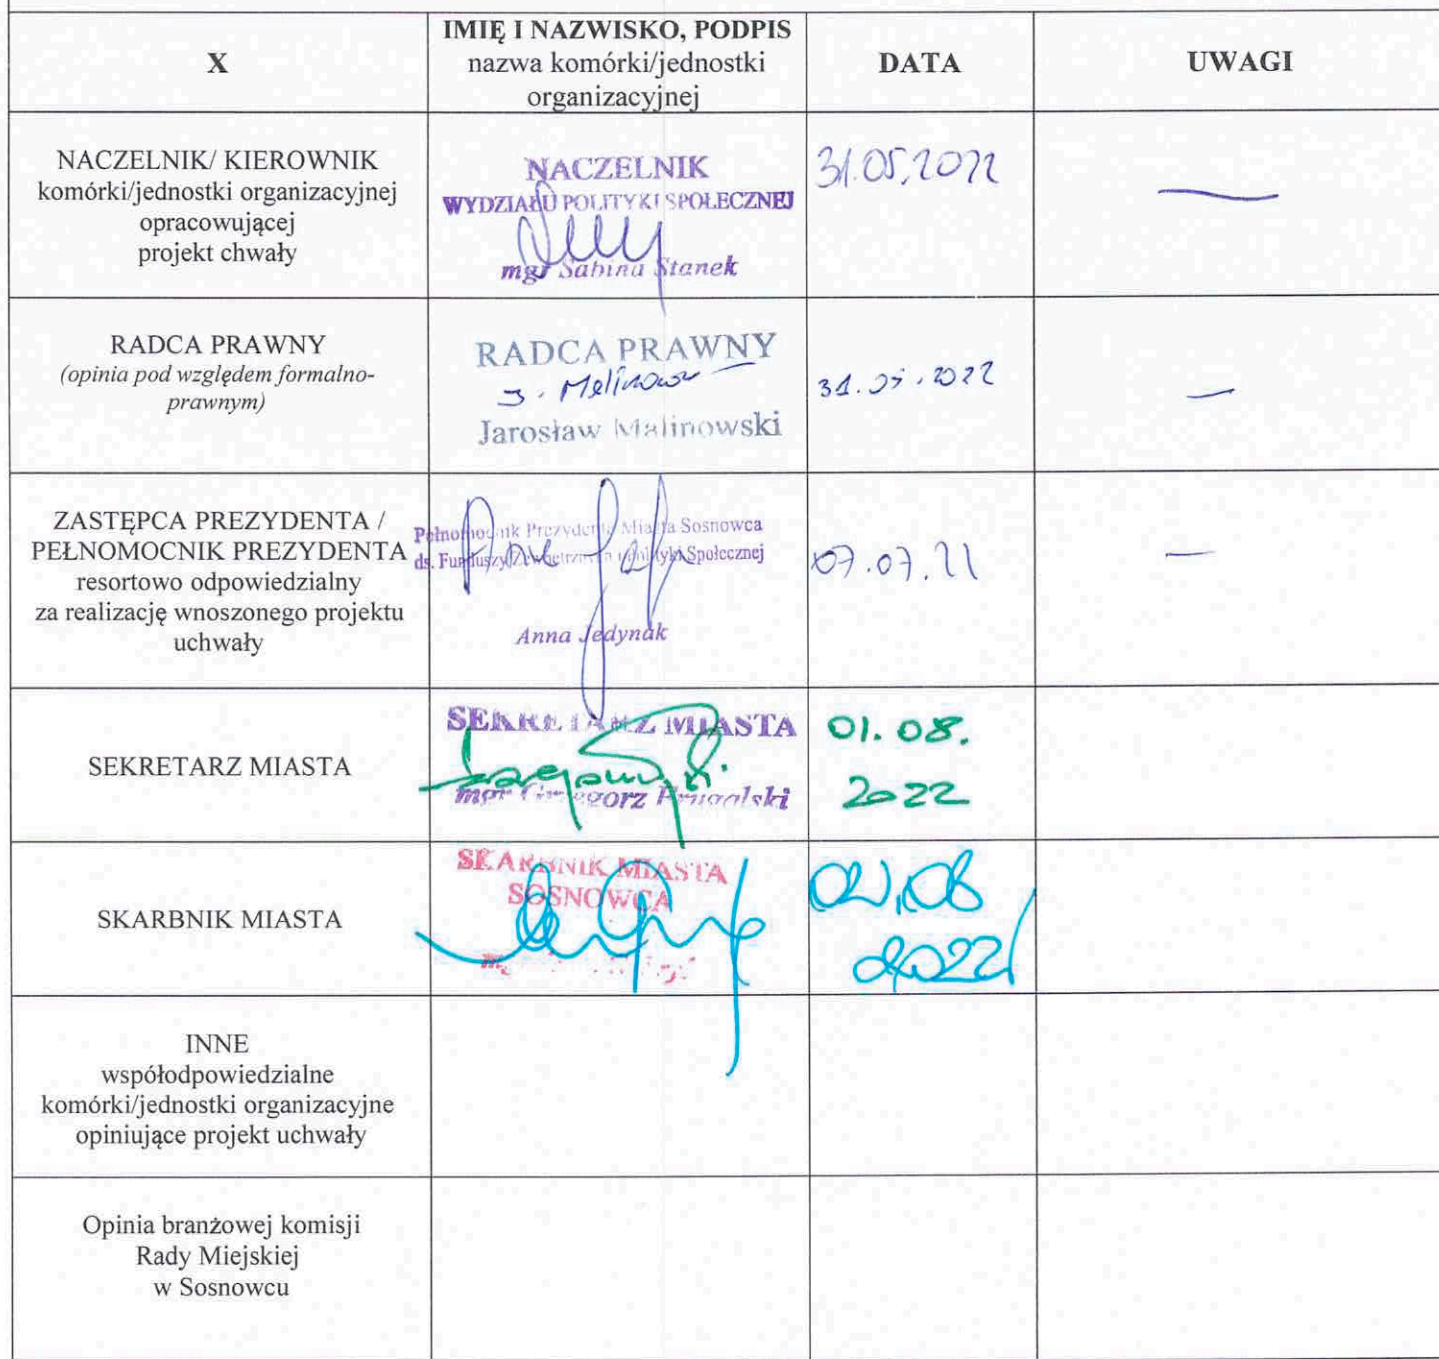 X
IMIĘ I NAZWISKO, PODPIS
nazwa komórki/jednostki
organizacyjnej
DATA
UWAGI
NACZELNIK/ KIEROWNIK
komórki/jednostki organizacyjnej
opracowującej
projekt chwały
NACZELNIK
WYDZIAŁU POLITYKI SPOŁECZNEJ
mgr Sabina Stanek
31.05.2022
RADCA PRAWNY
(opinia pod względem formalno-
prawnym)
RADCA PRAWNY
J. Malinows
Jarosław Malinowski
31.05.2022
ZASTĘPCA PREZYDENTA /
PEŁNOMOCNIK PREZYDENTA
resortowo odpowiedzialny
za realizację wnoszonego projektu
uchwały
Pełnomocnik Prezydenta Miasta Sosnowca
ds. Funduszy Zewnętrznych i Polityki Społecznej
Anna Jedynak
07.07.22
SEKRETARZ MIASTA
SEKRETARZ MIASTA
mgr Grzegorz
01.08.
2022
SKARBNIK MIASTA
SKARBNIK MIASTA
SOSNOWCA
02.08
2022
INNE
współodpowiedzialne
komórki/jednostki organizacyjne
opiniujące projekt uchwały
Opinia branżowej komisji
Rady Miejskiej
w Sosnowcu